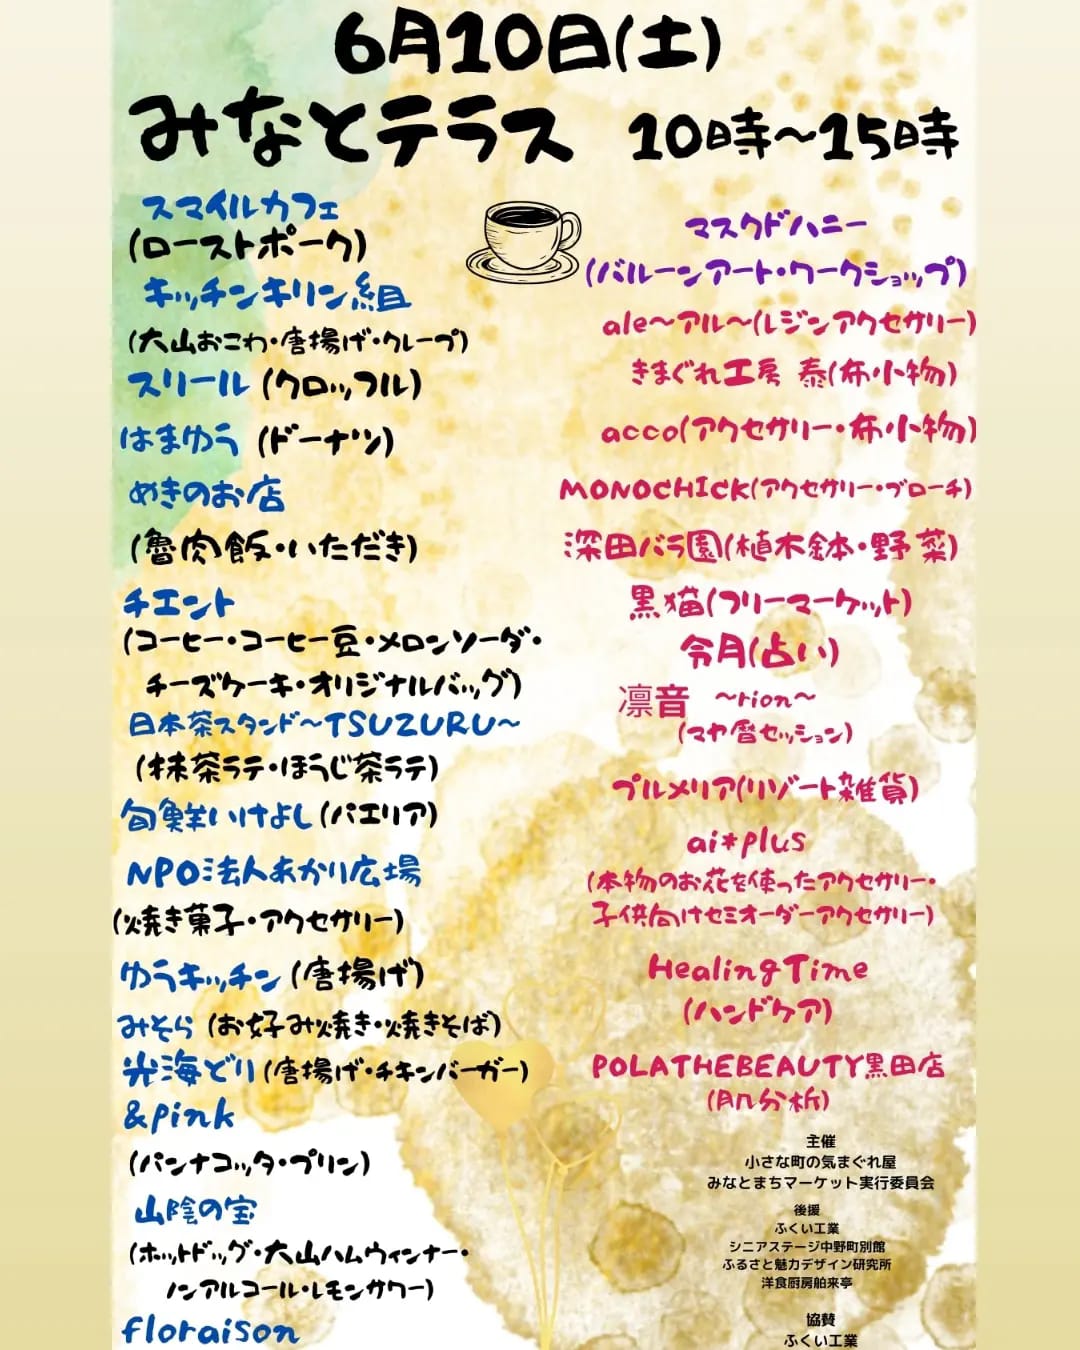 6月10日(土)
みなとテラス 10時～15時
スマイルカフェ
(ローストポーク)
キッチンキリン組
(大山おこわ・唐揚げ・クレープ)
スリール (クロッフル)
はまゆう (ドーナツ)
めきのお店
(魯肉飯・いただき)
チエント
(コーヒー・コーヒー豆・メロンソーダ・
チーズケーキ・オリジナルバッグ)
日本茶スタンド～TSUZURU～
(抹茶ラテ・ほうじ茶ラテ)
旬鮮いけよし (パエリア)
NPO法人あかり広場
(焼き菓子・アクセサリー)
ゆうキッチン (唐揚げ)
みそら (お好み焼き・焼きそば)
光海どり (唐揚げ・チキンバーガー)
&pink
(パンナコッタ・プリン)
山陰の宝
(ホットドッグ・大山ハムウィンナー・
ノンアルコール・レモンサワー)
floraison
マスクドハニー
(バルーンアート・ワークショップ)
ale～アル～(レジンアクセサリー)
きまぐれ工房 泰(布小物)
acco(アクセサリー・布小物)
MONOCHICK(アクセサリー・ブローチ)
深田バラ園(植木鉢・野菜)
黒猫(フリーマーケット)
令月(占い)
凛音 ～rion～
(マヤ暦セッション)
プルメリア(リゾート雑貨)
ai*plus
(本物のお花を使ったアクセサリー・
子供向けセミオーダーアクセサリー)
HealingTime
(ハンドケア)
POLATHEBEAUTY黒田店
(肌分析)
主催
小さな町の気まぐれ屋
みなとまちマーケット実行委員会
後援
ふくい工業
シニアステージ中野町別館
ふるさと魅力デザイン研究所
洋食厨房舶来亭
協賛
ふくい工業